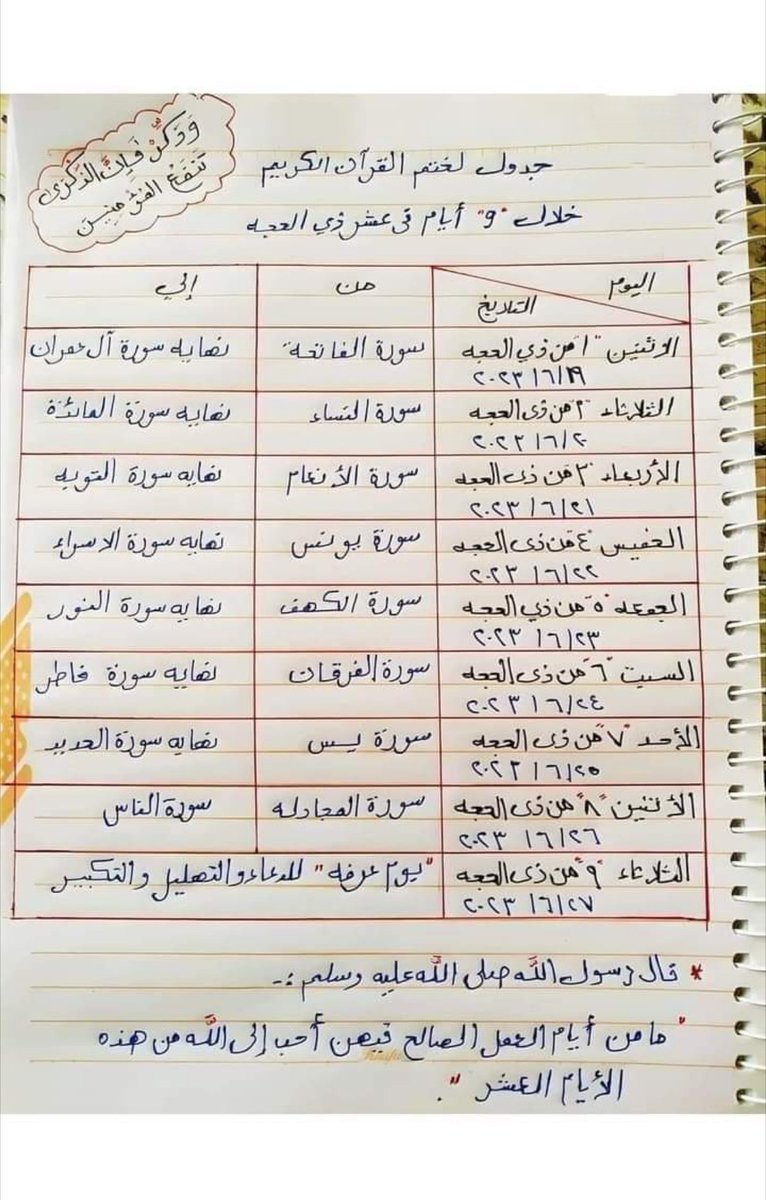 وَذَكِّرْ فَإِنَّ الذِّكْرَى
تَنفَعُ المُؤْمِنِينَ
جدول لختم القرآن الكريم
خلال "9" أيام في عشر ذي الحجه
اليوم التاريخ من إلي
الاثنين "١" من ذي الحجه سورة الفاتحة نهايه سورة آل عمران
٢٠٢٣/٦/١٩
الثلاثاء "٢" من ذى الحجه سورة النساء نهايه سورة المائدة
٢٠٢٣/٦/٢٠
الأربعاء "٣" من ذى الحجه سورة الأنعام نهايه سورة التوبه
٢٠٢٣/٦/٢١
الخميس "٤" من ذى الحجه سورة يونس نهايه سورة الاسراء
٢٠٢٣/٦/٢٢
الجمعه "٥" من ذي الحجه سورة الكهف نهايه سورة النور
٢٠٢٣/٦/٢٣
السبت "٦" من ذى الحجه سورة الفرقان نهاييه سورة فاطر
٢٠٢٣/٦/٢٤
الأحد "٧" من ذى الحجه سورة يس نهايه سورة الحديد
٢٠٢٣/٦/٢٥
الأثنين "٨" من ذى الحجه سورة المجادله سورة الناس
٢٠٢٣/٦/٢٦
الثلاثاء "٩" من ذى الحجه "يوم عرفه" للدعاء والتهليل والتكبير
٢٠٢٣/٦/٢٧
* قال رسول الله صلى الله عليه وسلم :-
"ما من أيام العمل الصالح فيهن أحب إلى الله من هذه
الأيام العشر".